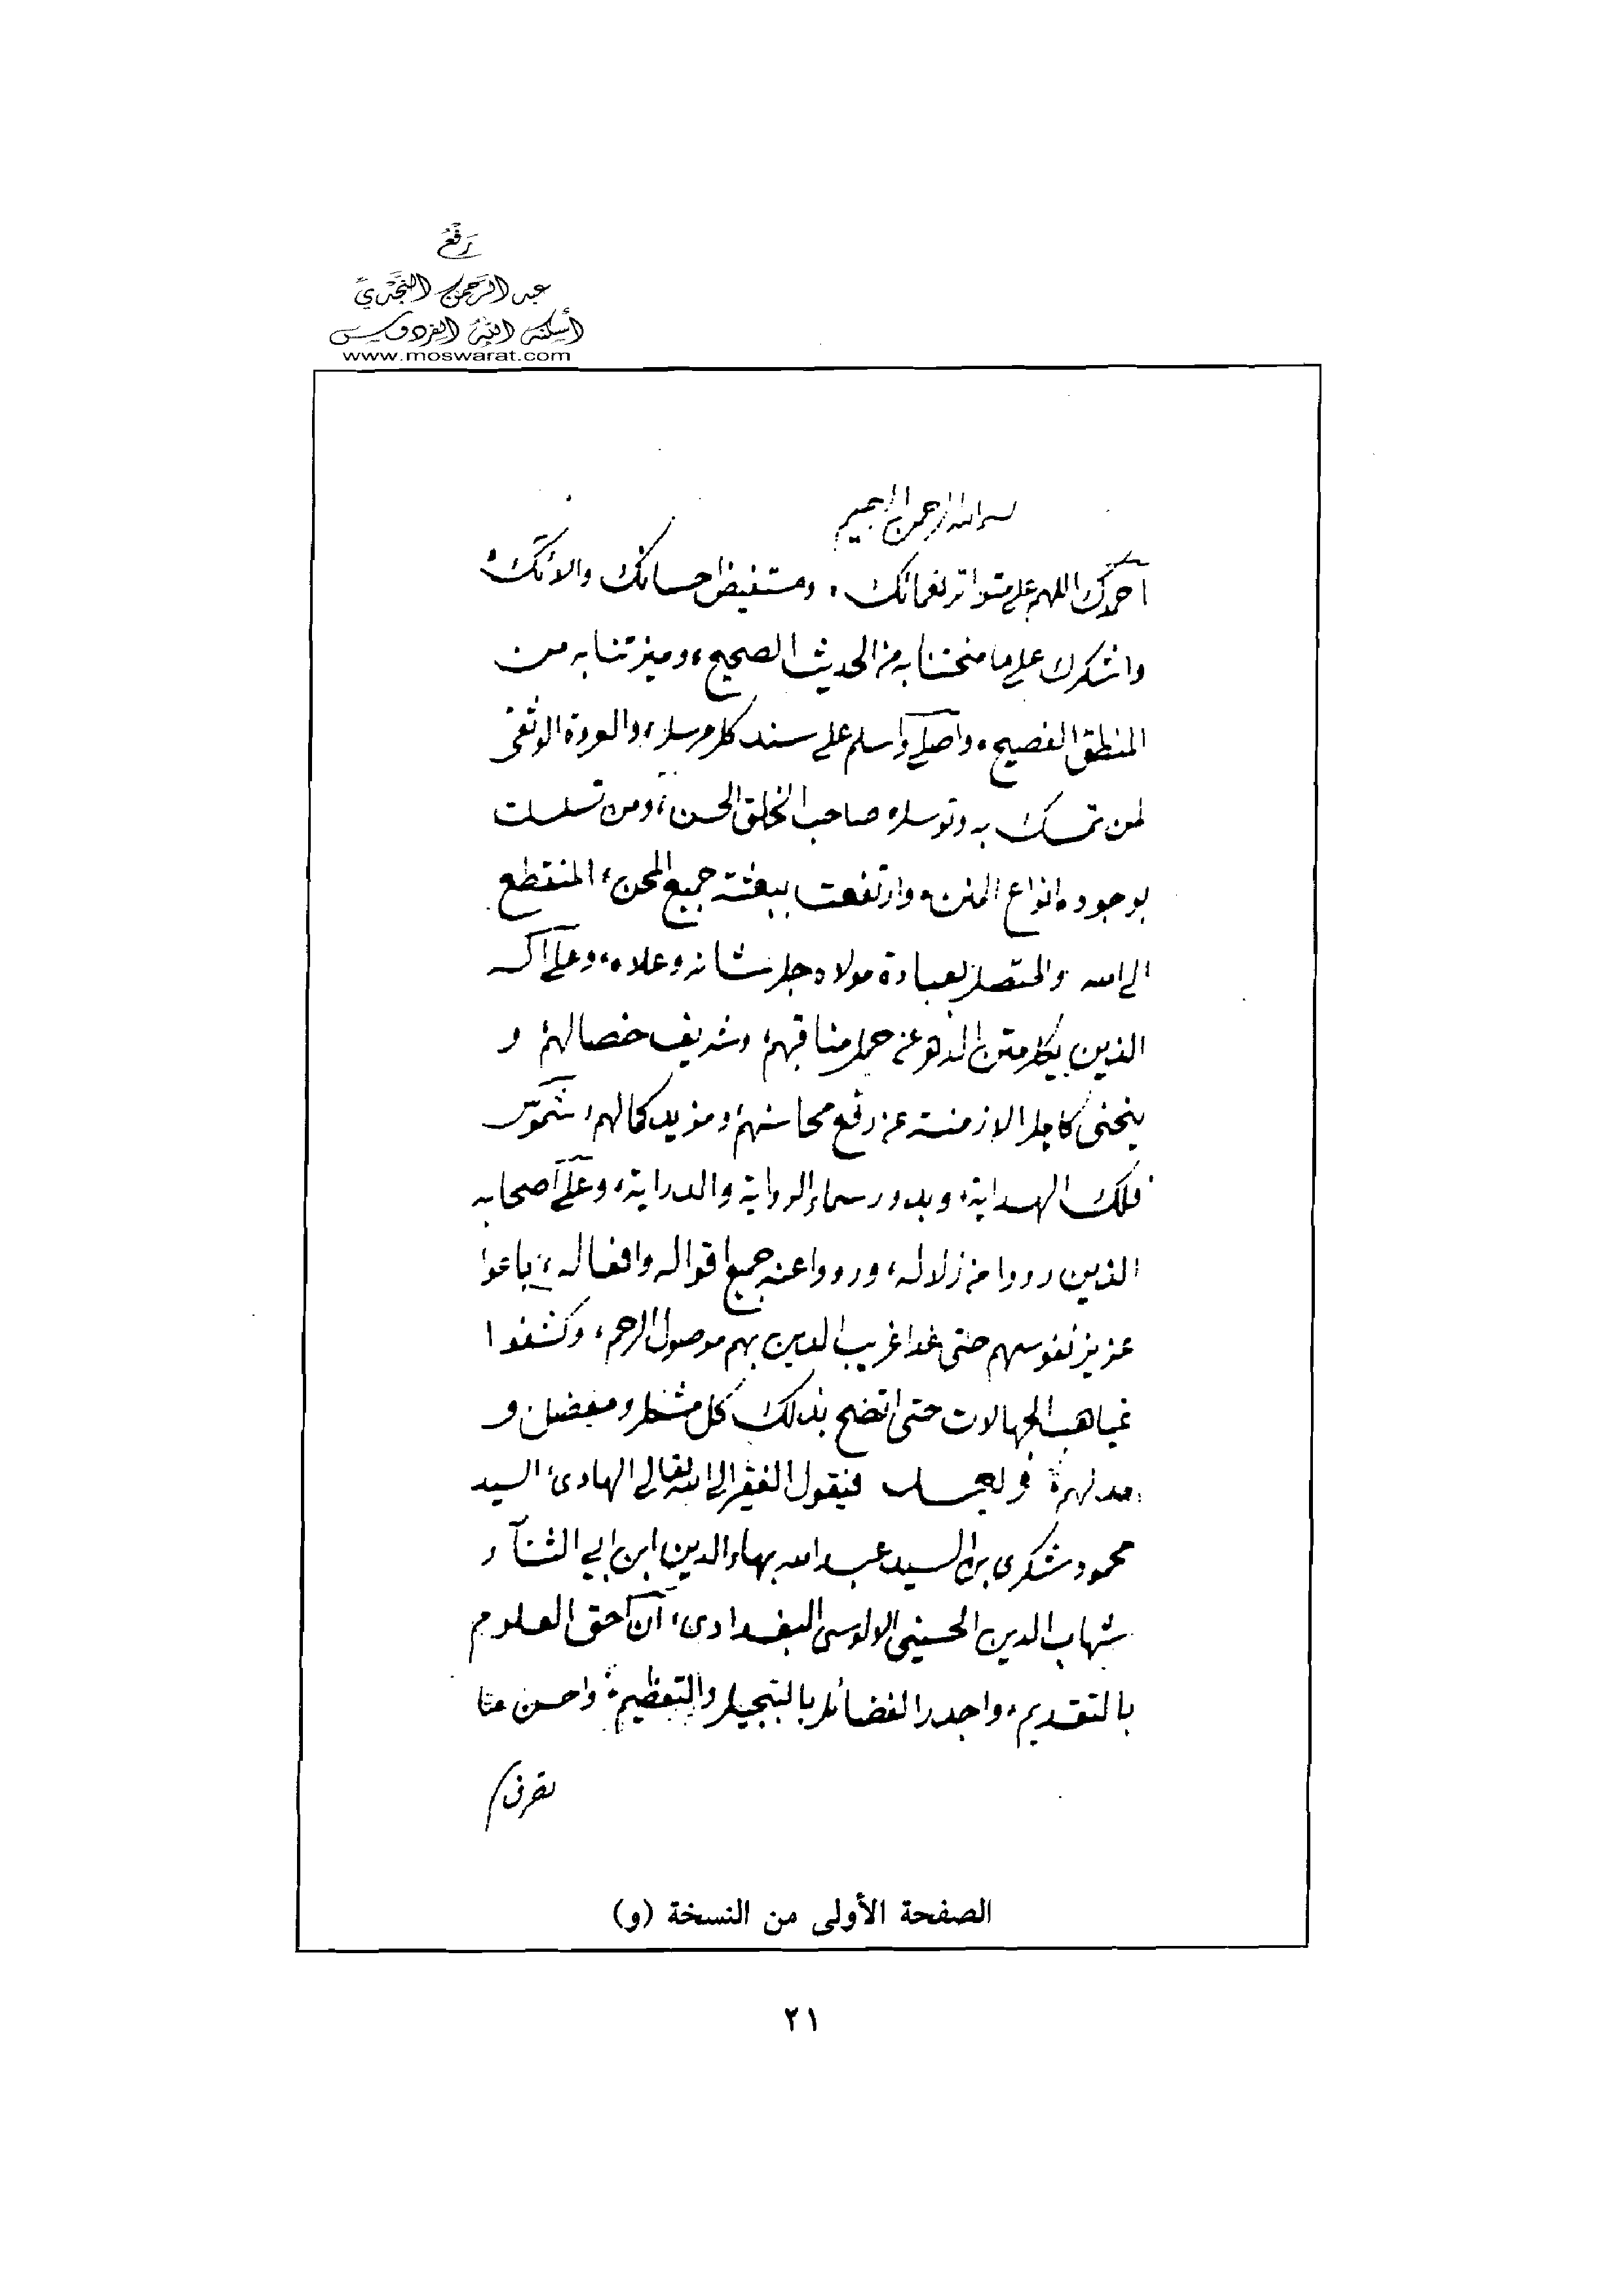 رَفْعُ
عبد الرحمن النجدي
أسكنه الله الفردوس
www.moswarat.com
بسم الله الرحمن الرحيم
احمدك اللهم على متواتر نعمائك، ومستفيض احسانك والائك،
واشكرك على ما منحتنا به من الحديث الصحيح، وميزتنا به من
المنطق الفصيح، واصلي واسلم على سند كل مرسل، والعروة الوثقى
لمن تمسك به وتوسل، صاحب الخلق الحسن، ومن تسلسلت
بوجوده انواع المنن، وارتفعت ببعثته جميع المحن، المنقطع
الى الله والمتصل بعبادة مولاه جل شانه وعلاه، وعلى آله
الذين يكل متن الدهر عن حمل مناقبهم، وشريف خصالهم، و
ينحني كاهل الازمنة عن رفع محاسنهم، ومزيد كمالهم، شموس
فلك الهداية، وبدور سماء الرواية والدراية، وعلى اصحابه
الذين رووا من زلاله، ورووا عنه جميع اقواله وافعاله، باعوا
عزيز نفوسهم حتى غدا غريب الدين بهم موصول الرحم، وكشفوا
غياهب الجهالات حتى اتضح بذلك كل مشكل ومعضل و
مدلهم، وبعد فيقول الفقير الى الله تعالى الهادي، السيد
محمود شكري بن السيد عبد الله بهاء الدين ابن ابي الثناء
شهاب الدين الحسيني الالوسي البغدادي، ان احق العلوم
بالتقديم، واجدر الفضائل بالتبجيل والتعظيم، واحسن ما
الصفحة الأولى من النسخة (و)
٢١